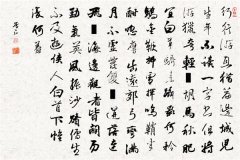 行行游且獵篇邊城兒
生年不讀一字書但知
游獵夸輕胡馬秋肥
宜白草騎來躡影何矜
驕金鞭拂雪揮鳴鞘半
酣呼鷹出遠郊弓彎滿
月不虛發雙迸落連
飛海邊觀者皆辟易
猛氣英風振沙磧儒生
不及遊俠人白首下帷
復何益